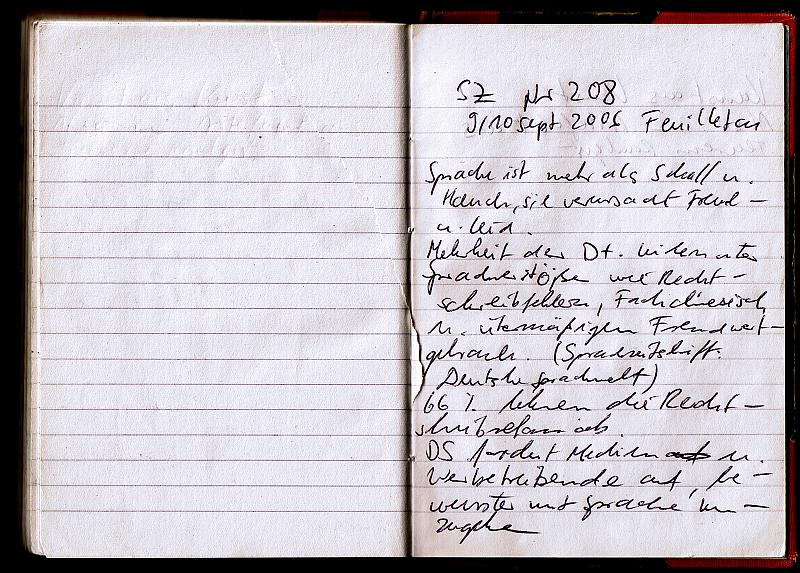 SZ Nr 208
9/10 Sept 2006 Feuilleton
Sprache ist mehr als Schall u.
Hauch, sie verursacht Freud –
u. Leid.
Mehrheit der Dt. leiden unter
Sprachverstößen wie Recht –
schreibfehlern, Fachchinesisch
u. übermäßigem Fremdwort –
gebrauch. (Sprachzeitschrift:
Deutsche Sprachwelt)
66 % lehnen die Recht –
schreibreform ab.
DS fordert Medien u.
Werbetreibende auf, be –
wusster mit Sprache um –
zugehen